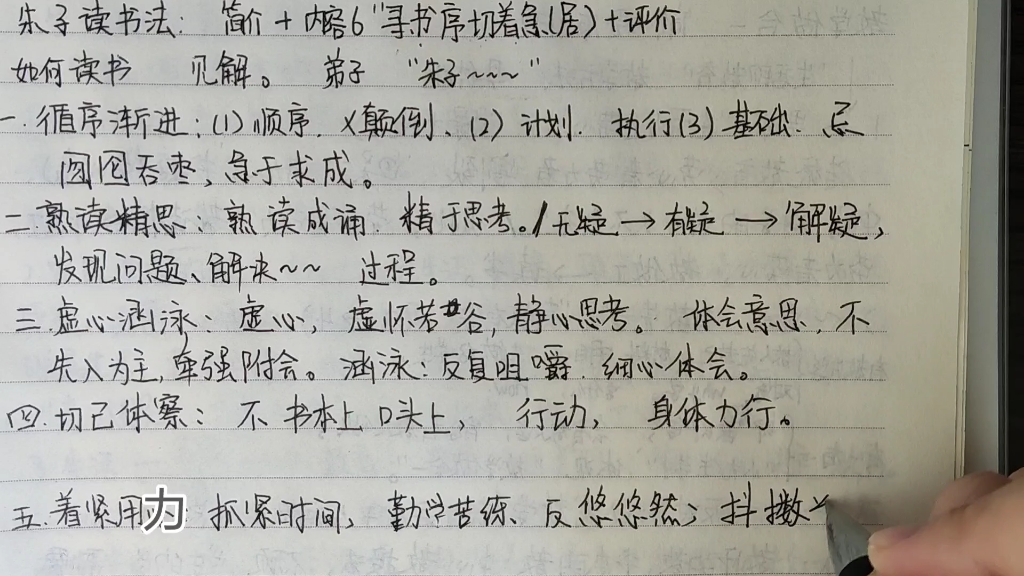 朱子读书法: 简介+内容6“寻书序切着急(居)+评价
如何读书 见解。 弟子 “朱子~~~”
一.循序渐进:(1)顺序.X颠倒、(2)计划.执行(3)基础.忌
囫囵吞枣,急于求成。
二.熟读精思:熟读成诵.精于思考。/无疑→有疑→解疑,
发现问题、解决~~ 过程。
三.虚心涵泳:虚心,虚怀若谷,静心思考。体会意思,不
先入为主,牵强附会。涵泳:反复咀嚼.细心体会。
四.切己体察:不 书本上 口头上, 行动, 身体力行。
五.着紧用力 抓紧时间,勤学苦练、反悠悠然;抖擞